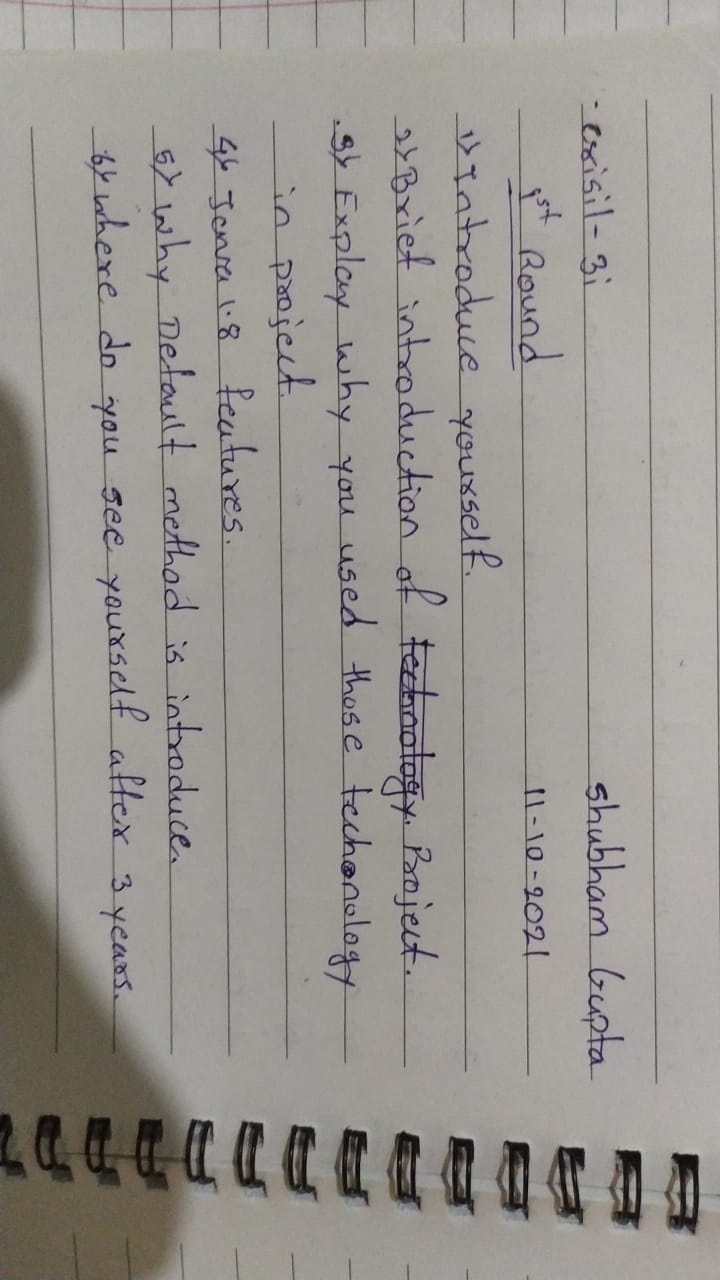 crisil - 3i
Shubham Gupta
1st Round
11-10-2021
1> Introduce yourself.
2> Brief introduction of technology. Project.
3> Explay why you used those techonology
in project.
4> Java 1.8 features.
5> Why Default method is introduce.
6> where do you see yourself after 3 years.